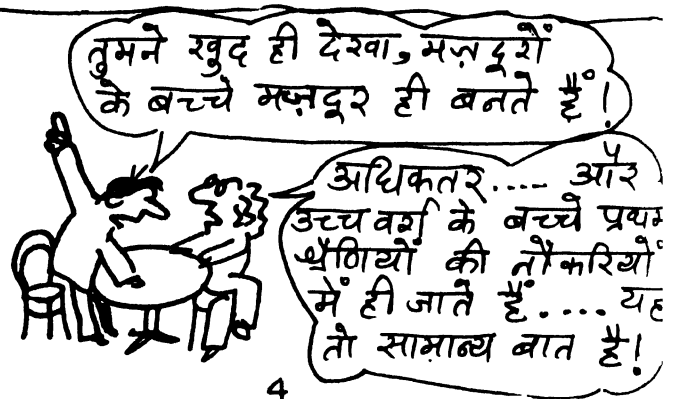 तुमने खुद ही देखा, मज़दूरों
के बच्चे मज़दूर ही बनते हैं!
अधिकतर..... और
उच्च वर्ग के बच्चे प्रथम
श्रेणियों की नौकरियों
में ही जाते हैं.... यह
तो सामान्य बात है!
4